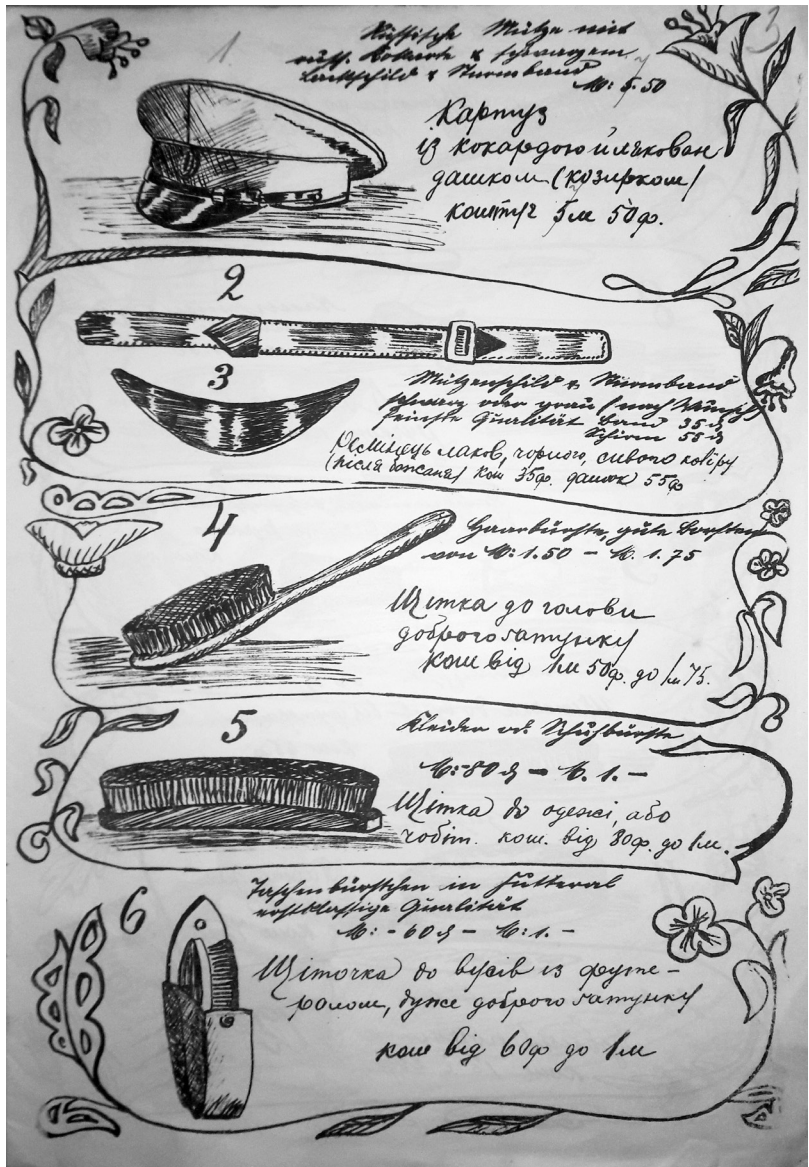 1
3
Russische Mütze mit
russ. Kokarde & schwarzem
Lackschild & Sturmband
M: 5.50
Картуз
із кокардою й лякован
дашком (козирком)
коштує 5м 50ф.
2
3
Mützenschild & Sturmband
schwarz oder grau (nach Wunsch)
feinste Qualität Band 35 ₰
Schirm 55 ₰
Ремінець лаков, чорного, сивого коліру
(після бажаня) кош 35ф. дашок 55ф
4
Haarbürste, gute Borsten
von M: 1.50 – M. 1.75
Щітка до голови
доброго ґатунку
кош від 1м 50ф. до 1м 75.
5
Kleider od. Schuhbürste
M: -80 ₰ – M. 1. –
Щітка до одежі, або
чобіт. кош. від 80ф. до 1м.
6
Taschenbürstchen in Futteral
erstklassige Qualität
M: - 60 ₰ – M: 1. –
Щіточка до вусів із футе-
ралом, дуже доброго ґатунку
кош від 60ф до 1м